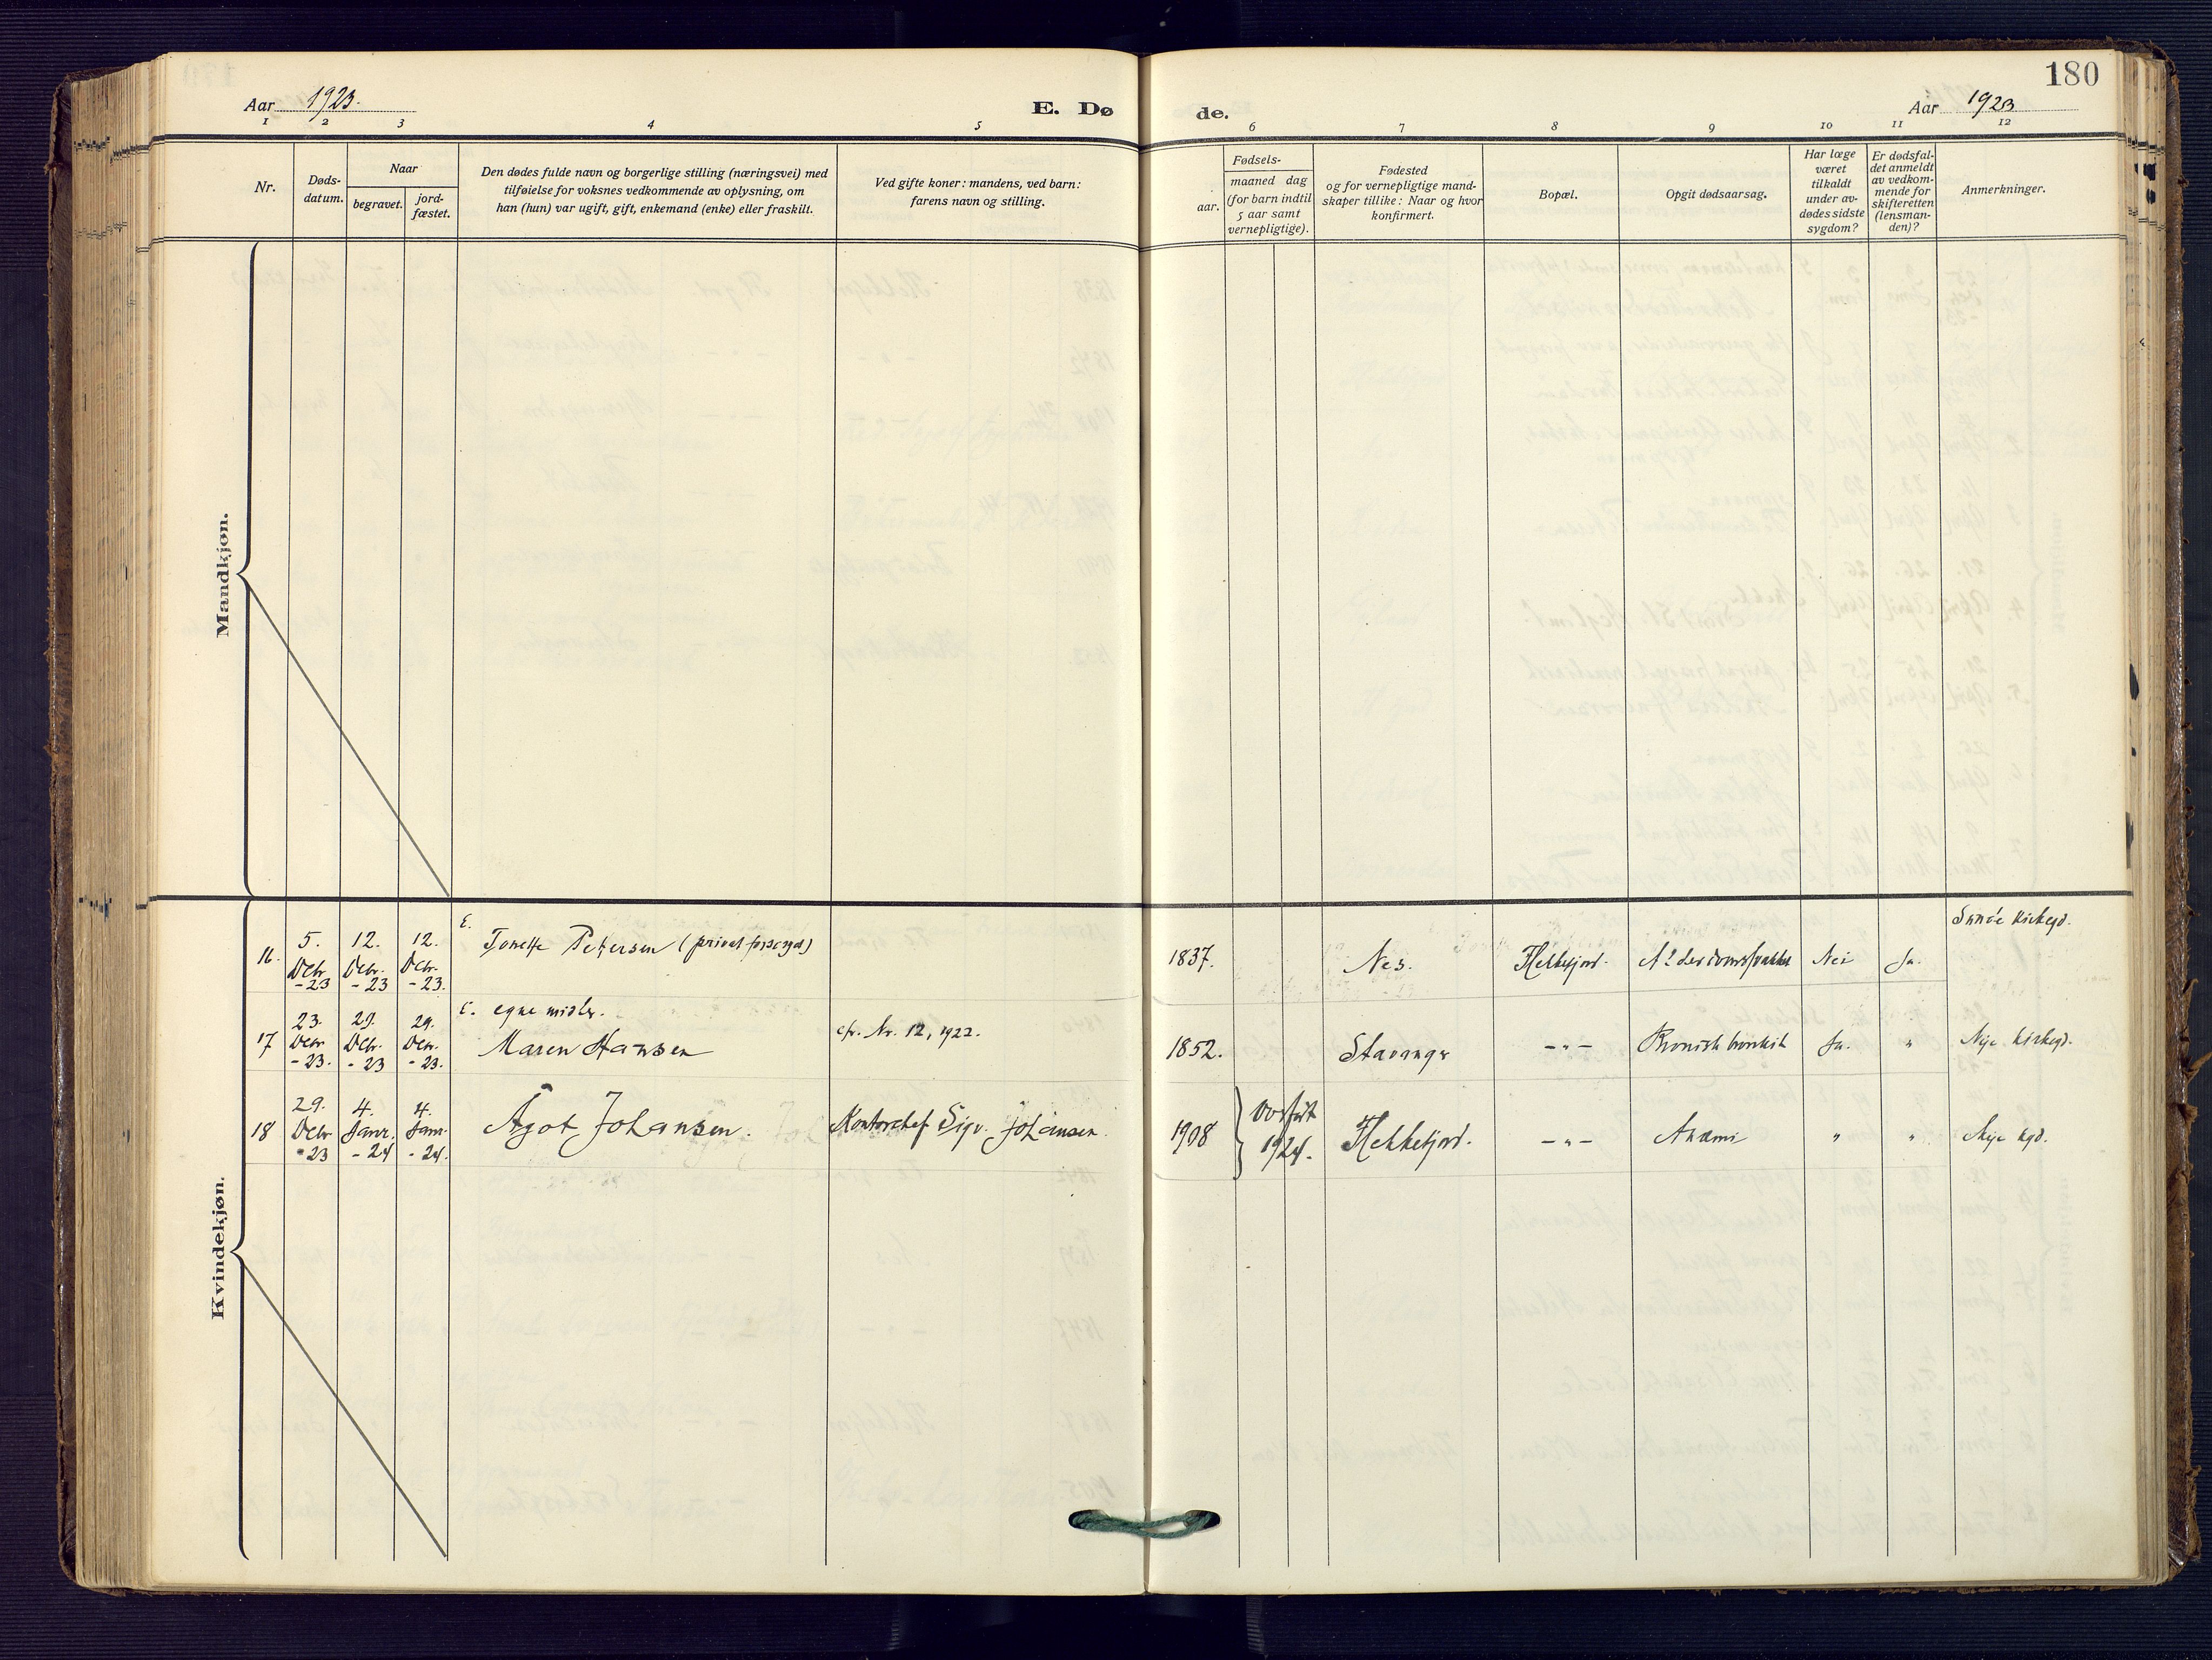 180
Aar 1923.
E. Dø
de.
Aar 1923
1 2 3 4 5 6 7 8 9 10 11 12
Nr.
Døds-
datum.
Naar
begravet.
jord-
fæstet.
Den dødes fulde navn og borgerlige stilling (næringsvei) med
tilføielse for voksnes vedkommende av oplysning, om
han (hun) var ugift, gift, enkemand (enke) eller fraskilt.
Ved gifte koner: mandens, ved barn:
farens navn og stilling.
Fødsels-
aar.
maaned dag
(for barn indtil
5 aar samt
vernepligtige).
Fødested
og for vernepligtige mand-
skaper tillike: Naar og hvor
konfirmert.
Bopæl.
Opgit dødsaarsag.
Har læge
været
tilkaldt
under av-
dødes sidste
sygdom?
Er dødsfal-
det anmeldt
av vedkom-
mende for
skifteretten
(lensman-
den)?
Anmerkninger.
Mandkjøn.
Kvindekjøn.
16. 5. Debr -23 12. Debr. -23 12. Debr. -23.
E.
Tonette Petersen (privat forsørget)
1837. Nes. Flekkefjord. Alderdomssvakhet Nei Ja. Sunde kirkegd.
17 23. Debr -23. 29. Debr. -23 29. Debr. -23.
E. egne midler.
Maren Hansen
cfr. Nr. 12, 1922.
1852. Stavanger -"- Kronisk bronkit Ja. " Nye kirkegd.
18 29. Debr -23 4. Janr. -24 4. Janr. -24.
Ågot Johansen. Kontorchef Sigv. Johansen.
1908 Flekkefjord. -"- Anæmi " " Nye kgd.
1924.